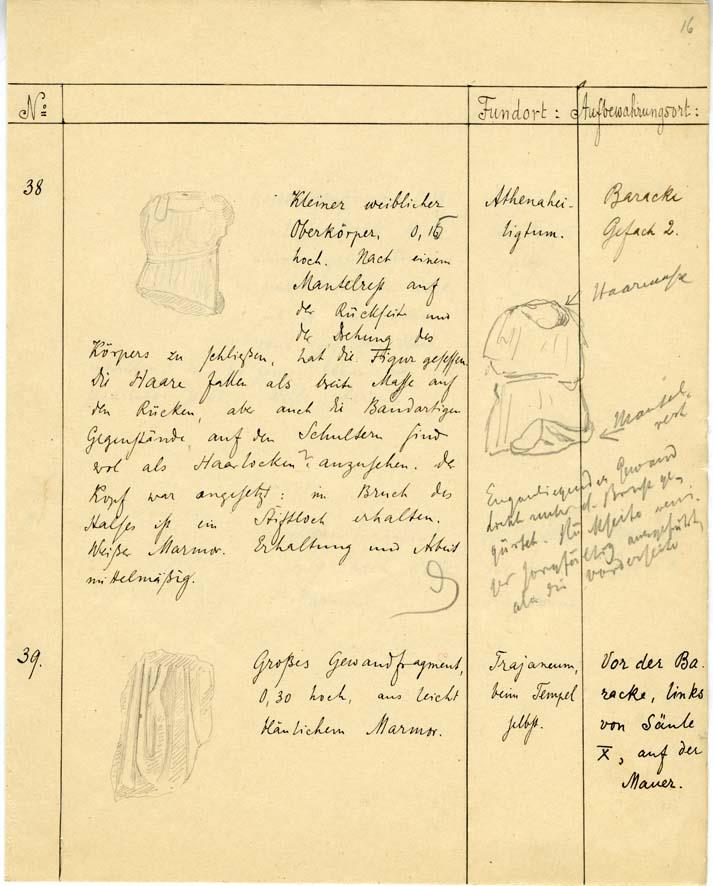 16
No: Fundort: Aufbewahrungsort:
38
Kleiner weiblicher
Oberkörper, 0,15
hoch. Nach einem
Mantelrest auf
der Rückseite und
der Drehung des
Körpers zu schließen, hat die Figur gesessen.
Die Haare fallen als breite Masse auf
den Rücken, aber auch die Bandartigen
Gegenstände auf den Schultern sind
wol als Haarlocken? anzusehen. Der
Kopf war angesetzt: im Bruch des
Halses ist ein Stiftloch erhalten.
Weißer Marmor. Erhaltung und Arbeit
mittelmäßig.
Athenahei-
ligtum.
Baracke
Gefach 2.
Haarmasse
Mantel-
rest
Enganliegendes Gewand
direkt unter d. Brust ge-
gürtet. Rückseite weni-
ger sorgfältig ausgeführt,
als die Vorderseite
39.
Großes Gewandfragment,
0,30 hoch, aus leicht
bläulichem Marmor.
Trajaneum,
beim Tempel
selbst.
Vor der Ba-
racke, links
von Säule
X, auf der
Mauer.